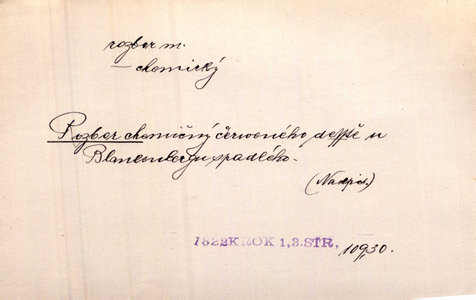 rozbor m.
— chemický
Rozbor chemičný červeného deště u
Blankenbergu spadlého.
(Nadpis.)
1822 KROK 1, 3. STR, 109,30.